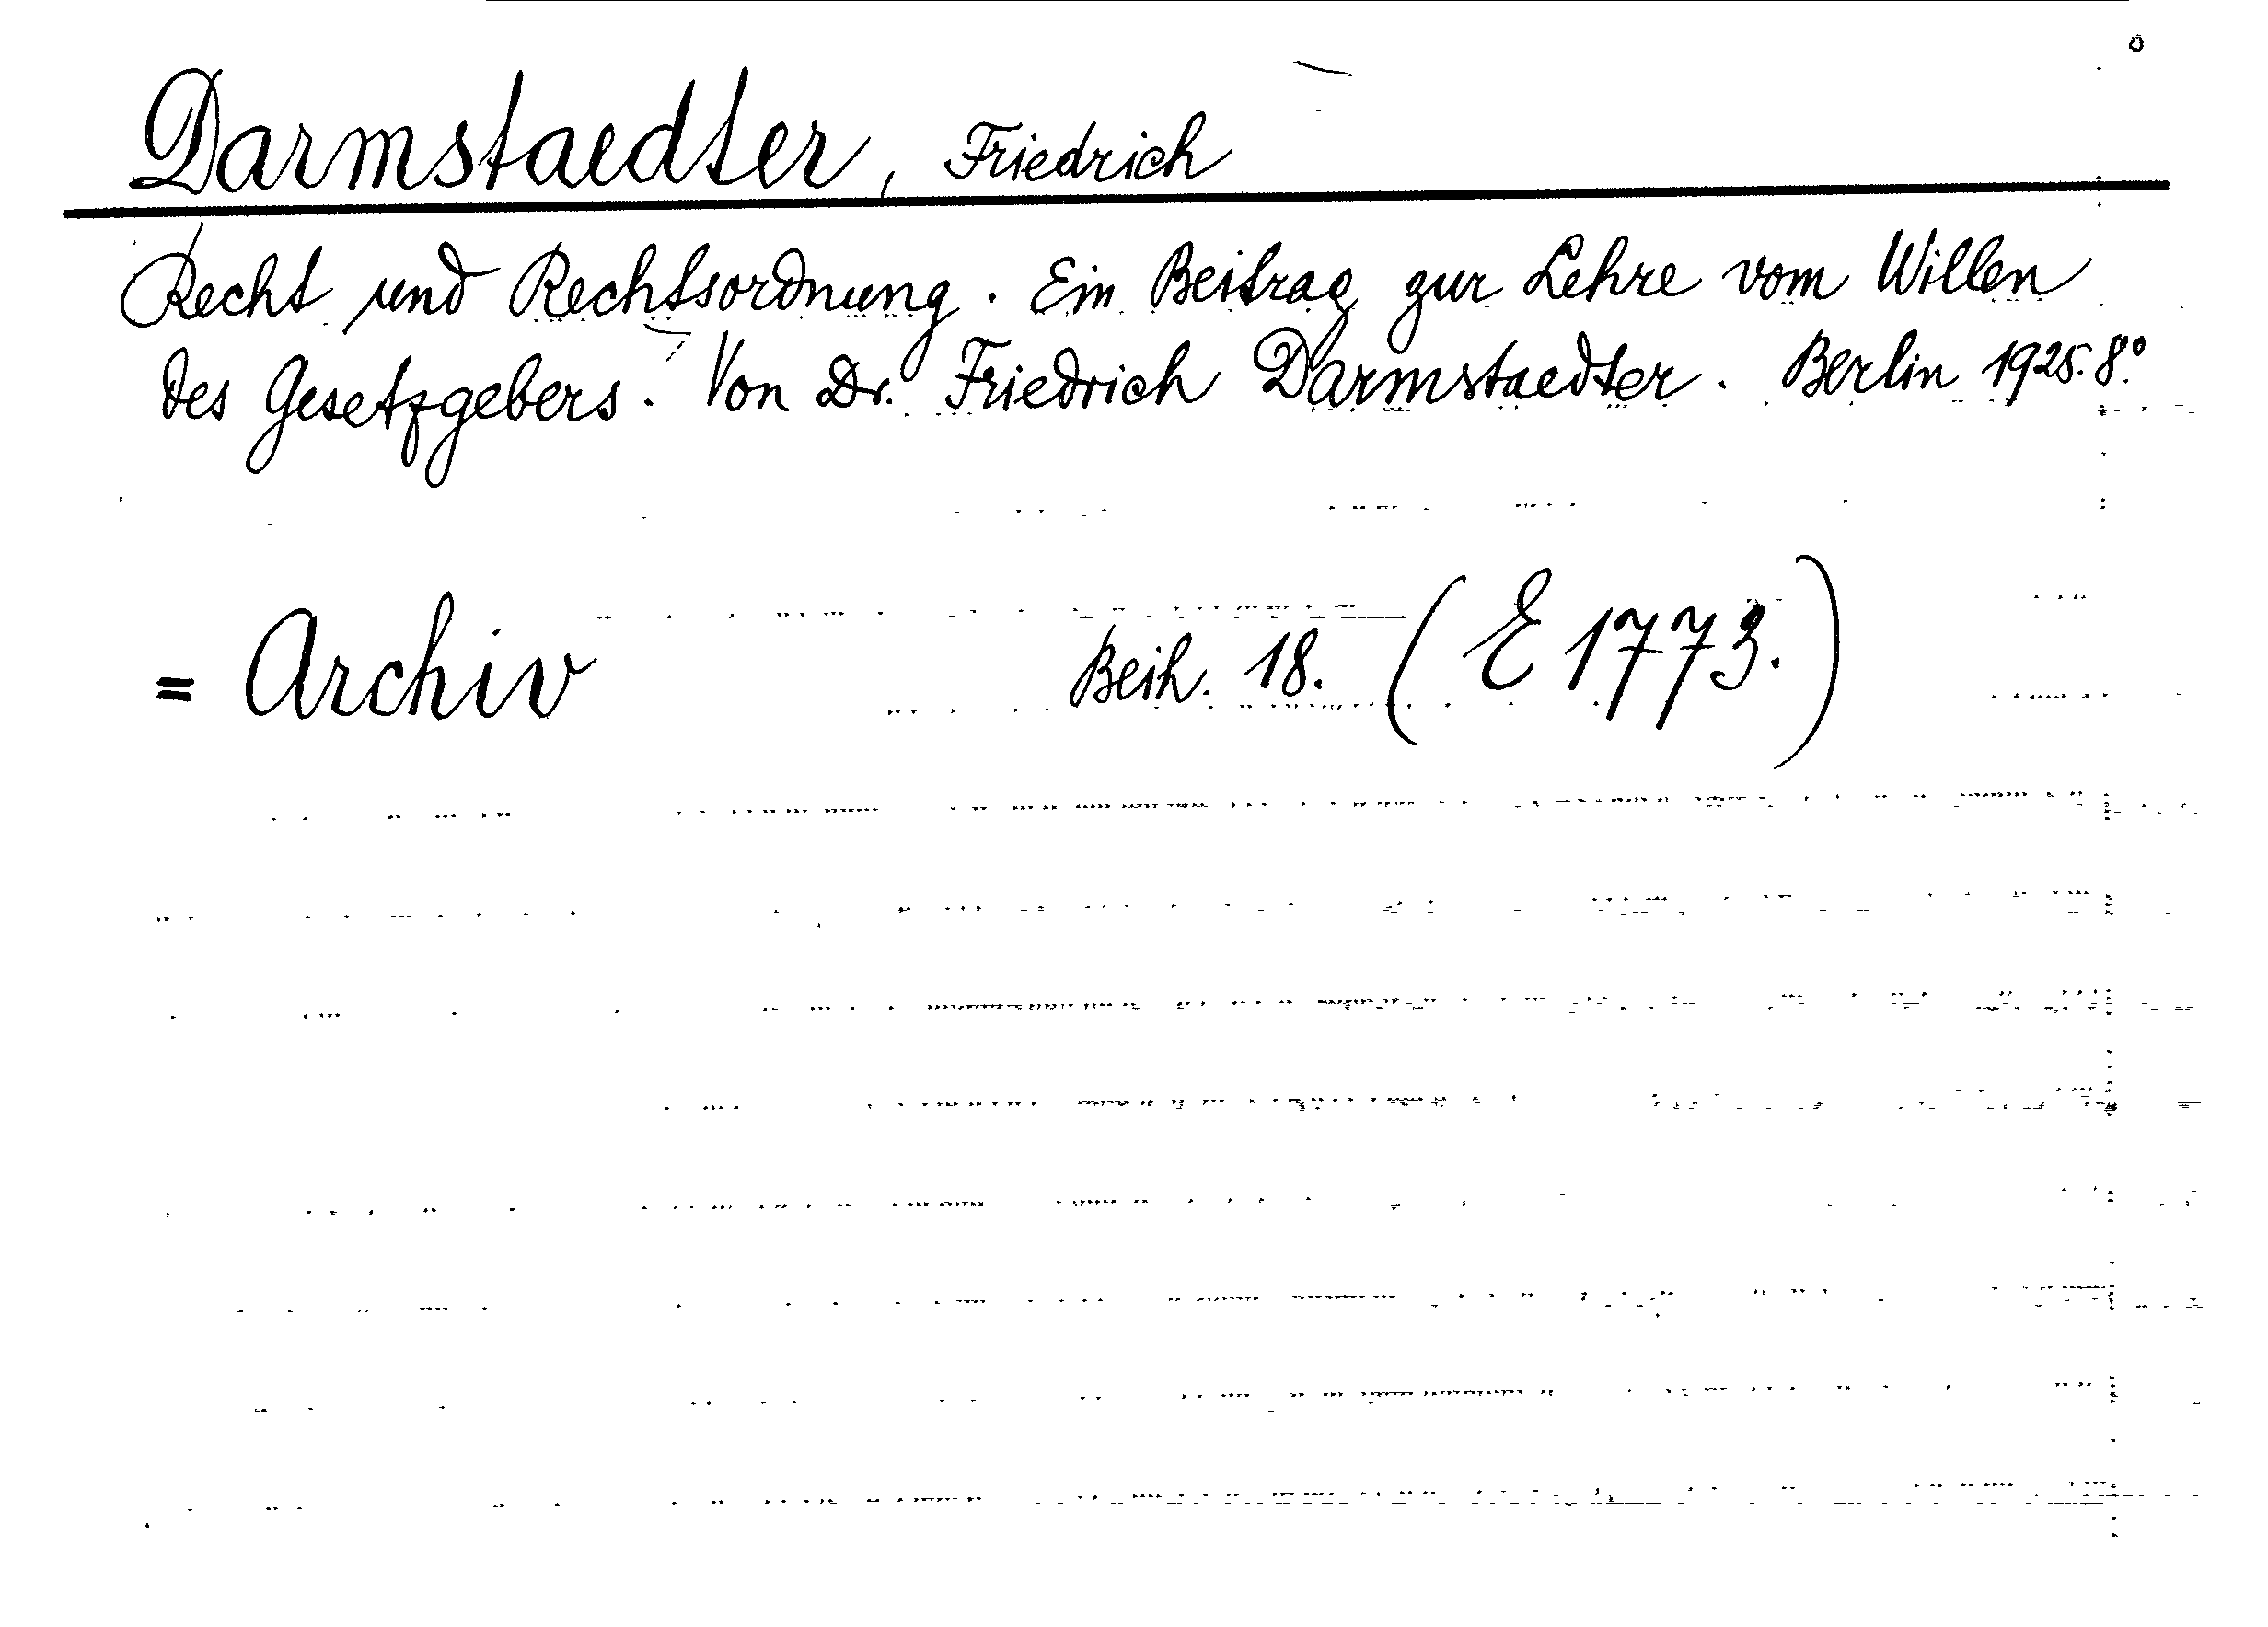 Darmstaedter, Friedrich
Recht und Rechtsordnung. Ein Beitrag zur Lehre vom Willen
des Gesetzgebers. Von Dr. Friedrich Darmstaedter. Berlin 1925. 8°.
= Archiv Beih. 18. (E 1773.)